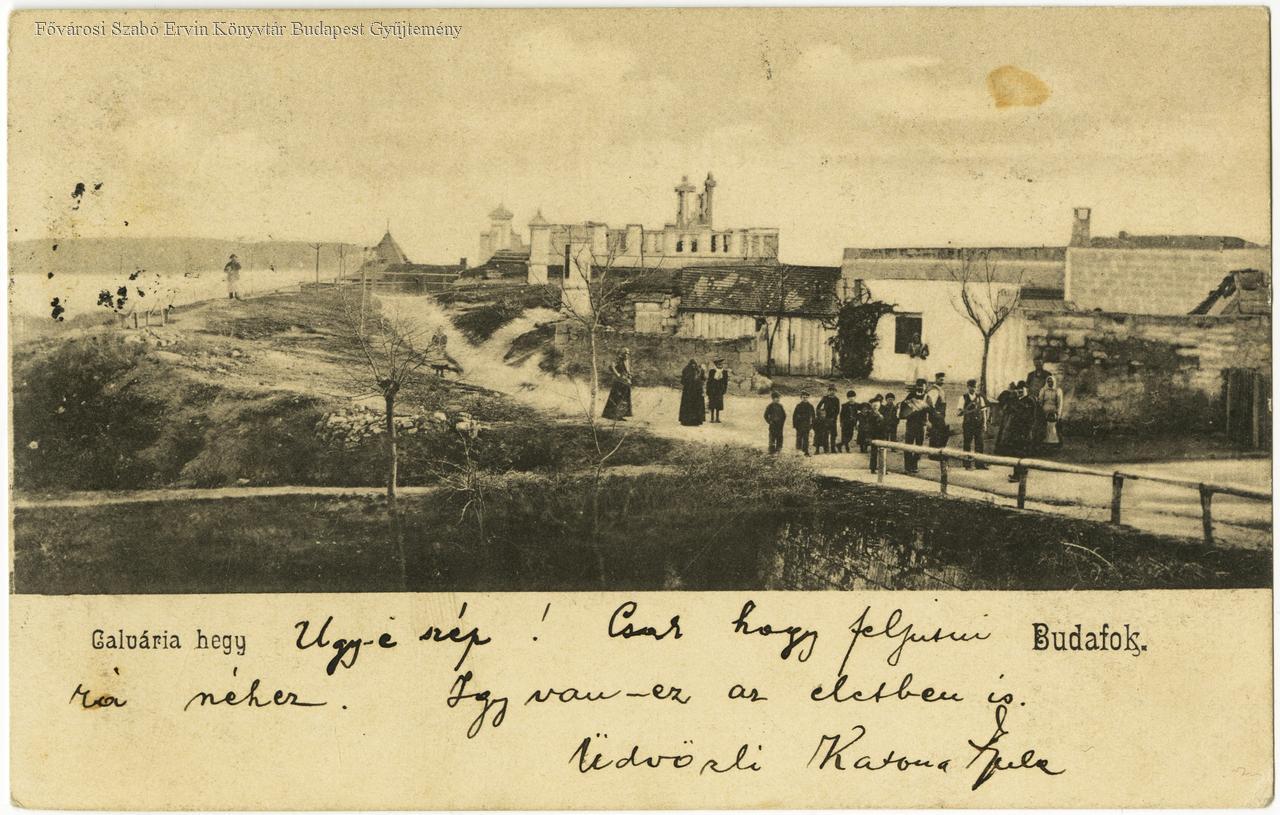 Fővárosi Szabó Ervin Könyvtár Budapest Gyűjtemény
Calvária hegy Ugy-é szép ! Csak hogy feljutni Budafok.
rá néhez. Igy van-ez az életben is.
Üdvözli Katona Gyula